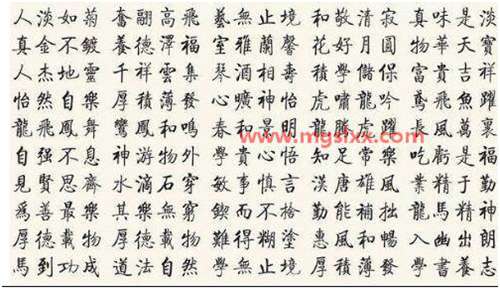 人淡如菊 奮翮高飛 藝無止境 和敬清寂 真味是淡
真金不鍍 養德澤福 室雅蘭馨 花好月圓 物華天寶
人杰地靈 千祥雲集 琴酒相壽 積學儲保 富貴吉祥
怡然自樂 厚積薄發 心曠神怡 虎嘯龍吟 鳶飛魚躍
龍飛鳳舞 鸞鳳和鳴 春和景明 虎躍 長風萬裏
www.mgslxx.com
自强不息 神游物外 學貴心悟 知足常樂 吃虧是福
見賢思齊 水滴石穿 敏事慎言 漢唐雄風 業精于勤
爲善最樂 其樂無窮 鍥而不捨 勤能補拙 龍馬精神
厚德載物 厚德載物 難得糊塗 惠風和暢 入幽出朗
馬到功成 道法自然 學無止境 厚積薄發 學書養志